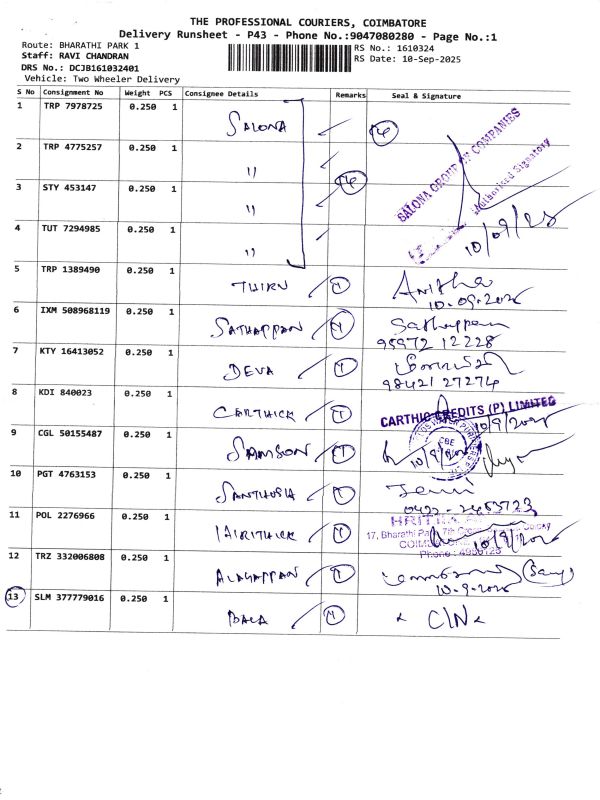 THE PROFESSIONAL COURIERS, COIMBATORE
Delivery Runsheet - P43 - Phone No.:9047080280 - Page No.:1
Route: BHARATHI PARK 1
RS No.: 1610324
Staff: RAVI CHANDRAN
RS Date: 10-Sep-2025
DRS No.: DCJB161032401
Vehicle: Two Wheeler Delivery
S No Consignment No Weight PCS Consignee Details Remarks Seal & Signature
1 TRP 7978725 0.250 1 SALONA
SALONA GROUP OF COMPANIES
Authorised Signatory
2 TRP 4775257 0.250 1 "
3 STY 453147 0.250 1 "
4 TUT 7294985 0.250 1 "
10/09/25
5 TRP 1389490 0.250 1 THIRU Anitha
10-09-2025
6 IXM 508968119 0.250 1 SATHAPPAN Sathappan
95972 12228
7 KTY 16413052 0.250 1 DEVA
98421 27274
8 KDI 840023 0.250 1 CARTHICK CARTHIC CREDITS (P) LIMITED
10/9/2025
9 CGL 50155487 0.250 1 SAMSON CBE
10 PGT 4763153 0.250 1 SANTHOSH
0422-2485723
11 POL 2276966 0.250 1
17, Bharathi Park 7th Cross
Phone : 4956123
12 TRZ 332006808 0.250 1 ALAGAPPAN
10-9-2025
13 SLM 377779016 0.250 1 BALA